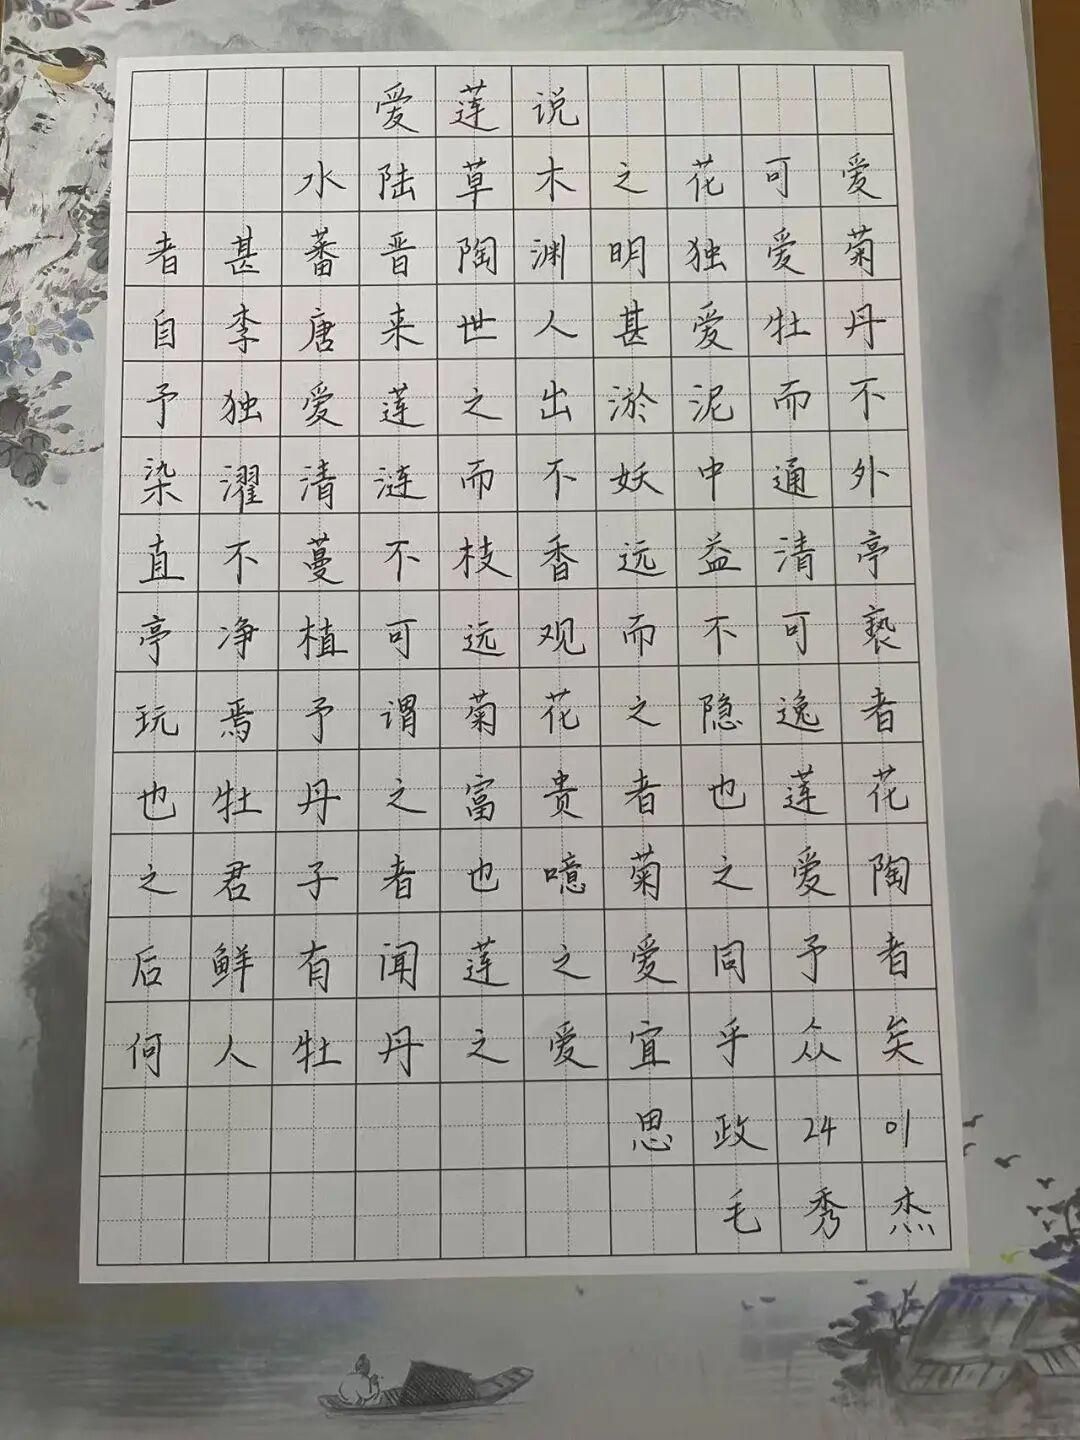 爱莲说
水陆草木之花可爱
者甚蕃晋陶渊明独爱菊
自李唐来世人甚爱牡丹
予独爱莲之出淤泥而不
染濯清涟而不妖中通外
直不蔓不枝香远益清亭
亭净植可远观而不可亵
玩焉予谓菊花之隐逸者
也牡丹之富贵者也莲花
之君子者也噫菊之爱陶
后鲜有闻莲之爱同予者
何人牡丹之爱宜乎众矣
思政2401
毛秀杰